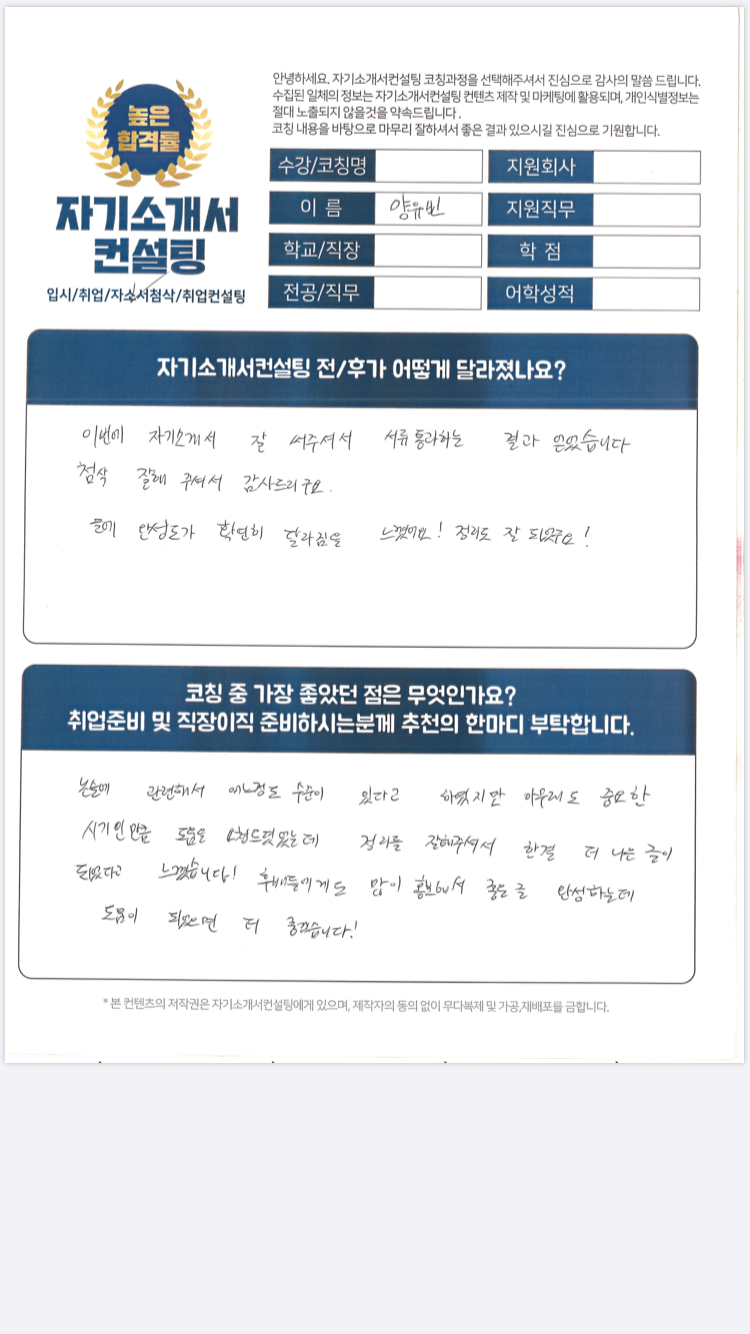 높은
합격률
자기소개서
컨설팅
입시/취업/자소서첨삭/취업컨설팅
안녕하세요. 자기소개서컨설팅 코칭과정을 선택해주셔서 진심으로 감사의 말씀 드립니다.
수집된 일체의 정보는 자기소개서컨설팅 컨텐츠 제작 및 마케팅에 활용되며, 개인식별정보는
절대 노출되지 않을것을 약속드립니다.
코칭 내용을 바탕으로 마무리 잘하셔서 좋은 결과 있으시길 진심으로 기원합니다.
수강/코칭명 지원회사
이 름 양유빈 지원직무
학교/직장 학 점
전공/직무 어학성적
자기소개서컨설팅 전/후가 어떻게 달라졌나요?
이번에 자기소개서 잘 써주셔서 서류통과하는 결과 얻었습니다
첨삭 잘해 주셔서 감사드리구요.
글에 완성도가 확연히 달라짐을 느꼈어요! 정리도 잘 되었구요!
코칭 중 가장 좋았던 점은 무엇인가요?
취업준비 및 직장이직 준비하시는분께 추천의 한마디 부탁합니다.
논술에 관련해서 어느정도 수준이 있다고 하였지만 아무래도 중요한
시기인만큼 도움을 요청드렸었는데 정리를 잘해주셔서 한결 더 나은 글이
되었다고 느꼈습니다! 후배들에게도 많이 홍보해서 좋은 글 완성하는데
도움이 되었으면 더 좋겠습니다!
* 본 컨텐츠의 저작권은 자기소개서컨설팅에게 있으며, 제작자의 동의 없이 무다복제 및 가공,재배포를 금합니다.